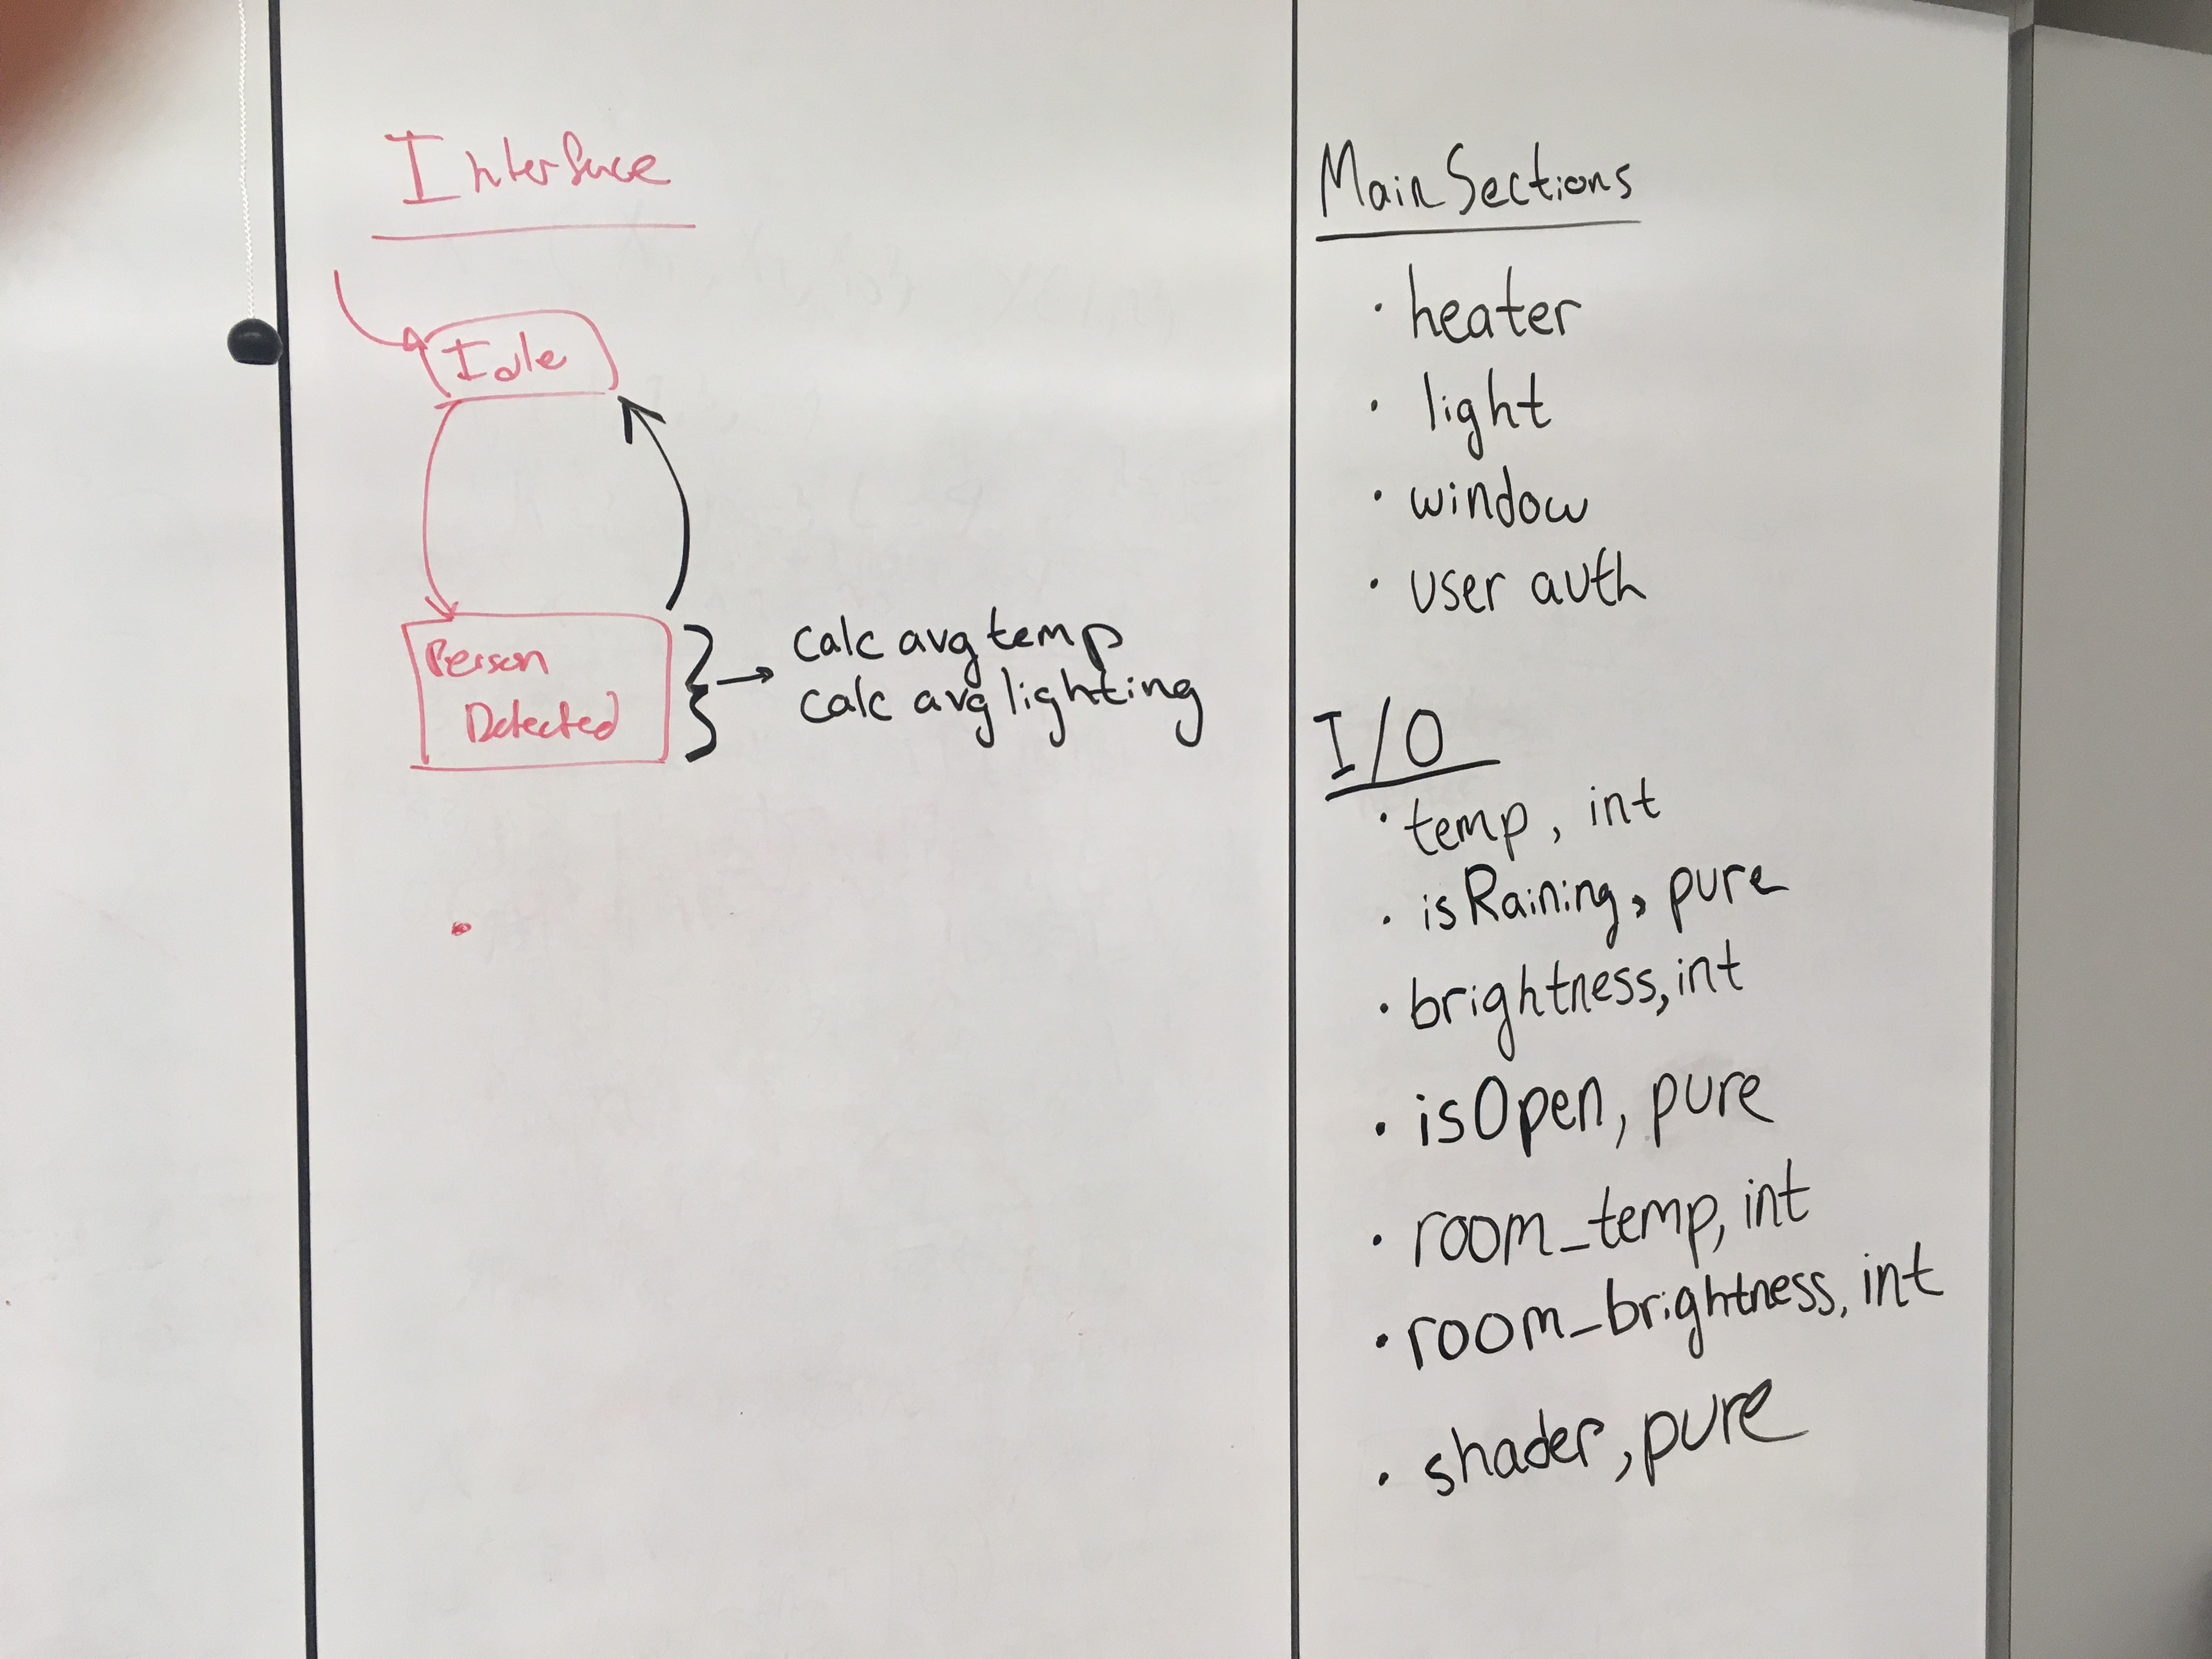 Interface
Idle
Person
Detected
calc avg temp
calc avg lighting
Main Sections
· heater
· light
· window
· user auth
I/O
· temp, int
· isRaining, pure
· brightness, int
· isOpen, pure
· room_temp, int
· room_brightness, int
· shader, pure